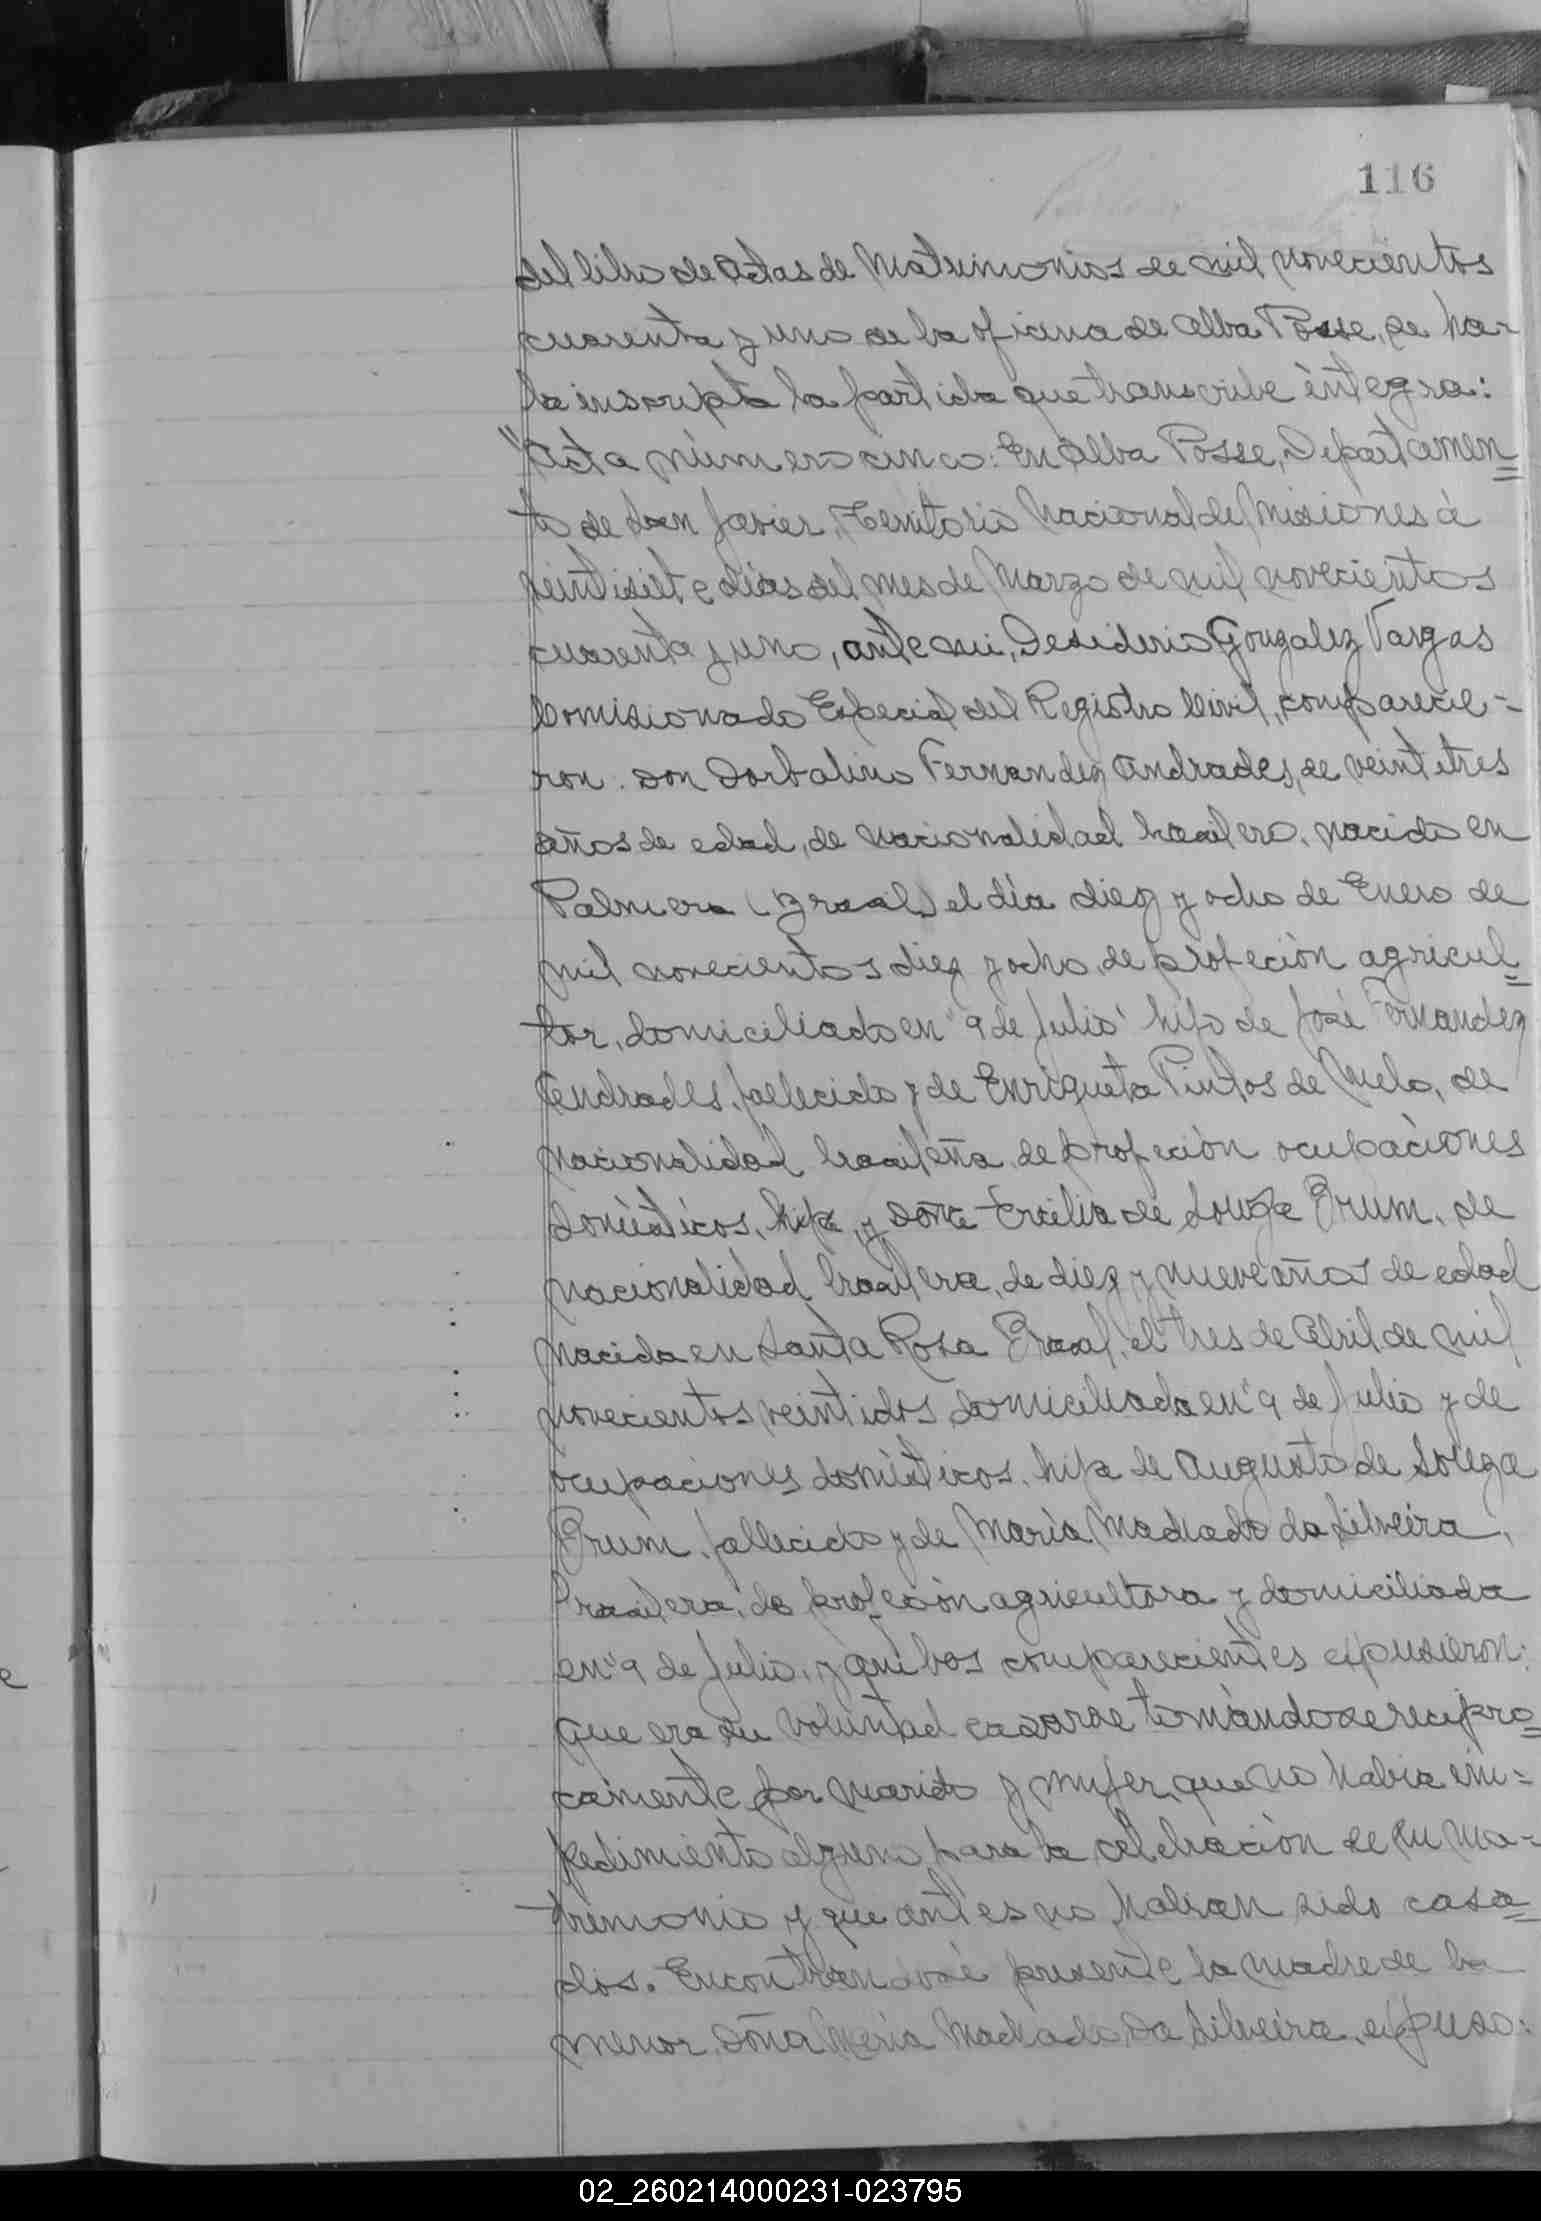 116
del libro de Actas de Matrimonios de mil novecientos
cuarenta y uno de la oficina de Alba Posse, se ha-
la inscripta la partida que transcribe íntegra:
"Acta número cinco: En Alba Posse, Departamen=
to de San Javier, Territorio Nacional de Misiones á
veintisiete días del mes de Marzo de mil novecientos
cuarenta y uno, ante mi, Desiderio Gonzalez Vargas
Comisionado Especial del Registro Civil, comparecie-
ron: Don Dorbalino Fernandez Andrades, de veintitres
años de edad, de nacionalidad brasilera, nacido en
Palmera (Brasil) el día diez y ocho de Enero de
mil novecientos diez y ocho, de profeción agricul=
tor, domiciliado en "9 de Julio" hijo de José Fernandez
Andrades, fallecido y de Enriqueta Pintos de Melo, de
nacionalidad brasileña, de profeción ocupaciones
domésticos, hija, y Doña Ercilia de Souza Brum, de
nacionalidad brasilera, de diez y nueve años de edad
nacida en Santa Rosa Brasil, el tres de Abril de mil
novecientos veintidos, domiciliada en "9 de Julio y de
ocupaciones domésticos, hija de Augusto de Souza
Brum, fallecido y de María Machado da Silveira,
brasilera, de profesión agricultora y domiciliada
en "9 de Julio, y ambos comparecientes expusieron:
que era su voluntad casarse tomándose recipro=
camente por marido y mujer, que no habia im=
pedimiento alguno para la celebración de su ma-
trimonio y que antes no habian sido casa=
dos. Encontrandose presente la madre de la
menor, Doña María Machado, da Silveira, expuso:
02_260214000231-023795